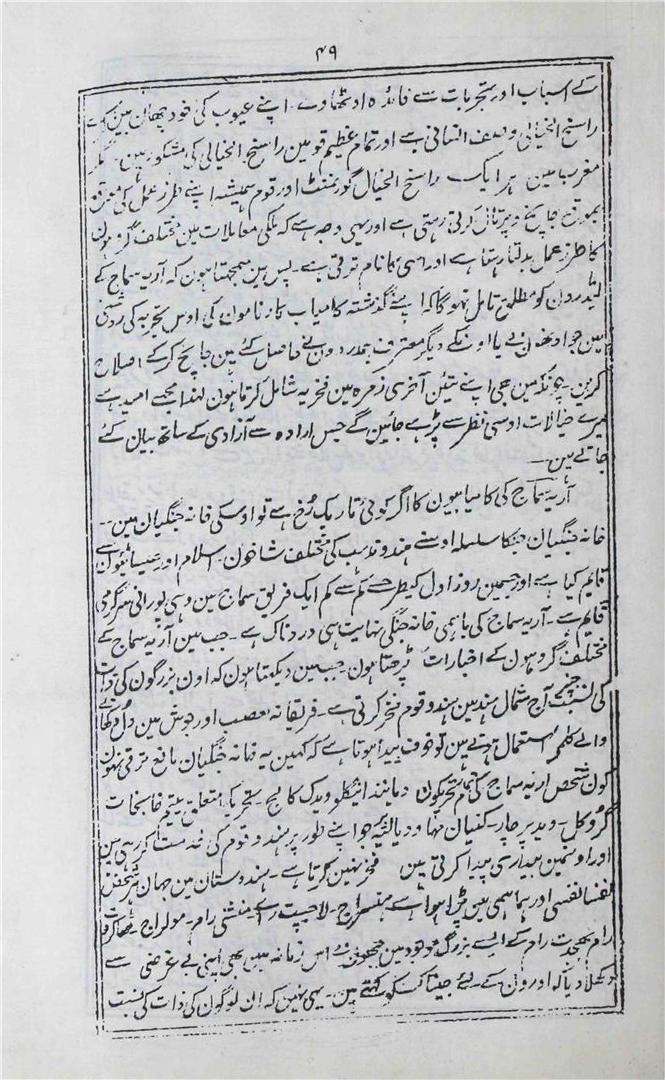 ۴۹
کے اسباب اور تجربات سے فائدہ اوٹھاوے۔ اپنے عیوب کی خود چھان بین کرے
راسخ الخیالی وصف انسانی ہے اور تمام عظیم قومین راسخ الخیالی کی مشکور ہین۔ مگر
مغرب مین ہر ایک راسخ الخیال گورنمنٹ اور قوم ہمیشہ اپنے طرز عمل کی موقع
بموقع جانچ و پرتال کرتی رہتی ہے اور یہی وجہ ہے کہ ملکی معاملات مین مختلف گروہون
کا طرز عمل بدلتا رہتا ہے اور اسی کا نام ترقی ہے۔ پس مین سمجھتا ہون کہ آریہ سماج کے
لیڈرون کو مطلق تامل نہوگا کہ اپنے گذشتہ کامیاب کارنامون کی اوس تجربہ کی روشنی
مین جو اونھون نے یا اونکے دیگر معترف ہمدردون نے حاصل کئے ہین جانچ کرکے اصلاح
کرین۔ چونکہ مین بھی اپنے تئین آخری زمرہ مین فخریہ شامل کرتا ہون لہذا مجھے امید ہے
میرے خیالات اوسی نظر سے پڑہے جائین گے جس ارادہ سے آزادی کے ساتھ بیان کئے
جاتے ہین۔
آریہ سماج کی کامیابیون کا اگر کوئی تاریک رخ ہے تو اوسکی خانہ جنگیان ہین۔
خانہ جنگیان جنکا سلسلہ اوسنے ہندو مذہب کی مختلف شاخون۔ اسلام اور عیسائیون سے
قایم کیا ہے اور جسمین روز اول کیطرح کم سے کم ایک فریق سماج مین وہی پورانی سرگرمی
قایم ہے۔ آریہ سماج کی باہمی خانہ جنگی نہایت ہی دردناک ہے۔ جب مین آریہ سماج کے
مختلف گروہون کے اخبارات پڑھتا ہون۔ جب مین دیکھتا ہون کہ اون بزرگون کی ذات
کی نسبت جنپر آج شمال ہند مین ہندو قوم فخر کرتی ہے۔ فریقانہ تعصب اور جوش مین دل دکھانے
والے کلمے استعمال ہوتے ہین تو خوف پیدا ہوتا ہے کہ کہین یہ خانہ جنگیان مانع ترقی نہون
کون شخص آریہ سماج کی تمام تحریکون دیانند انیگلو ویدک کالج۔ تحریک متعلق یتیم خانجات
گروکل۔ وید پرچار۔ کنیان مہا ودیالیہ پر جو اپنے طور پر ہندو قوم کی خدمت کر رہی ہین
اور اونمین بیداری پیدا کرتی ہین فخر نہین کرتا ہے۔ ہندوستان مین جہان ہر شخص
نفسا نفسی اور ہما ہمی مین پڑا ہوا ہے ہنسراج۔ لاجپت رائے منشی رام۔ مولراج۔ ٹھاکر
رام بھجدت رام کے ایسے بزرگ موجود ہین جنھون نے اس زمانہ مین بھی اپنی بے غرضی سے
دکھلا دیا کہ اورون کے لیے جینا کسکو کہتے ہین۔ یہی نہین کہ ان لوگون کی ذات کی نسبت